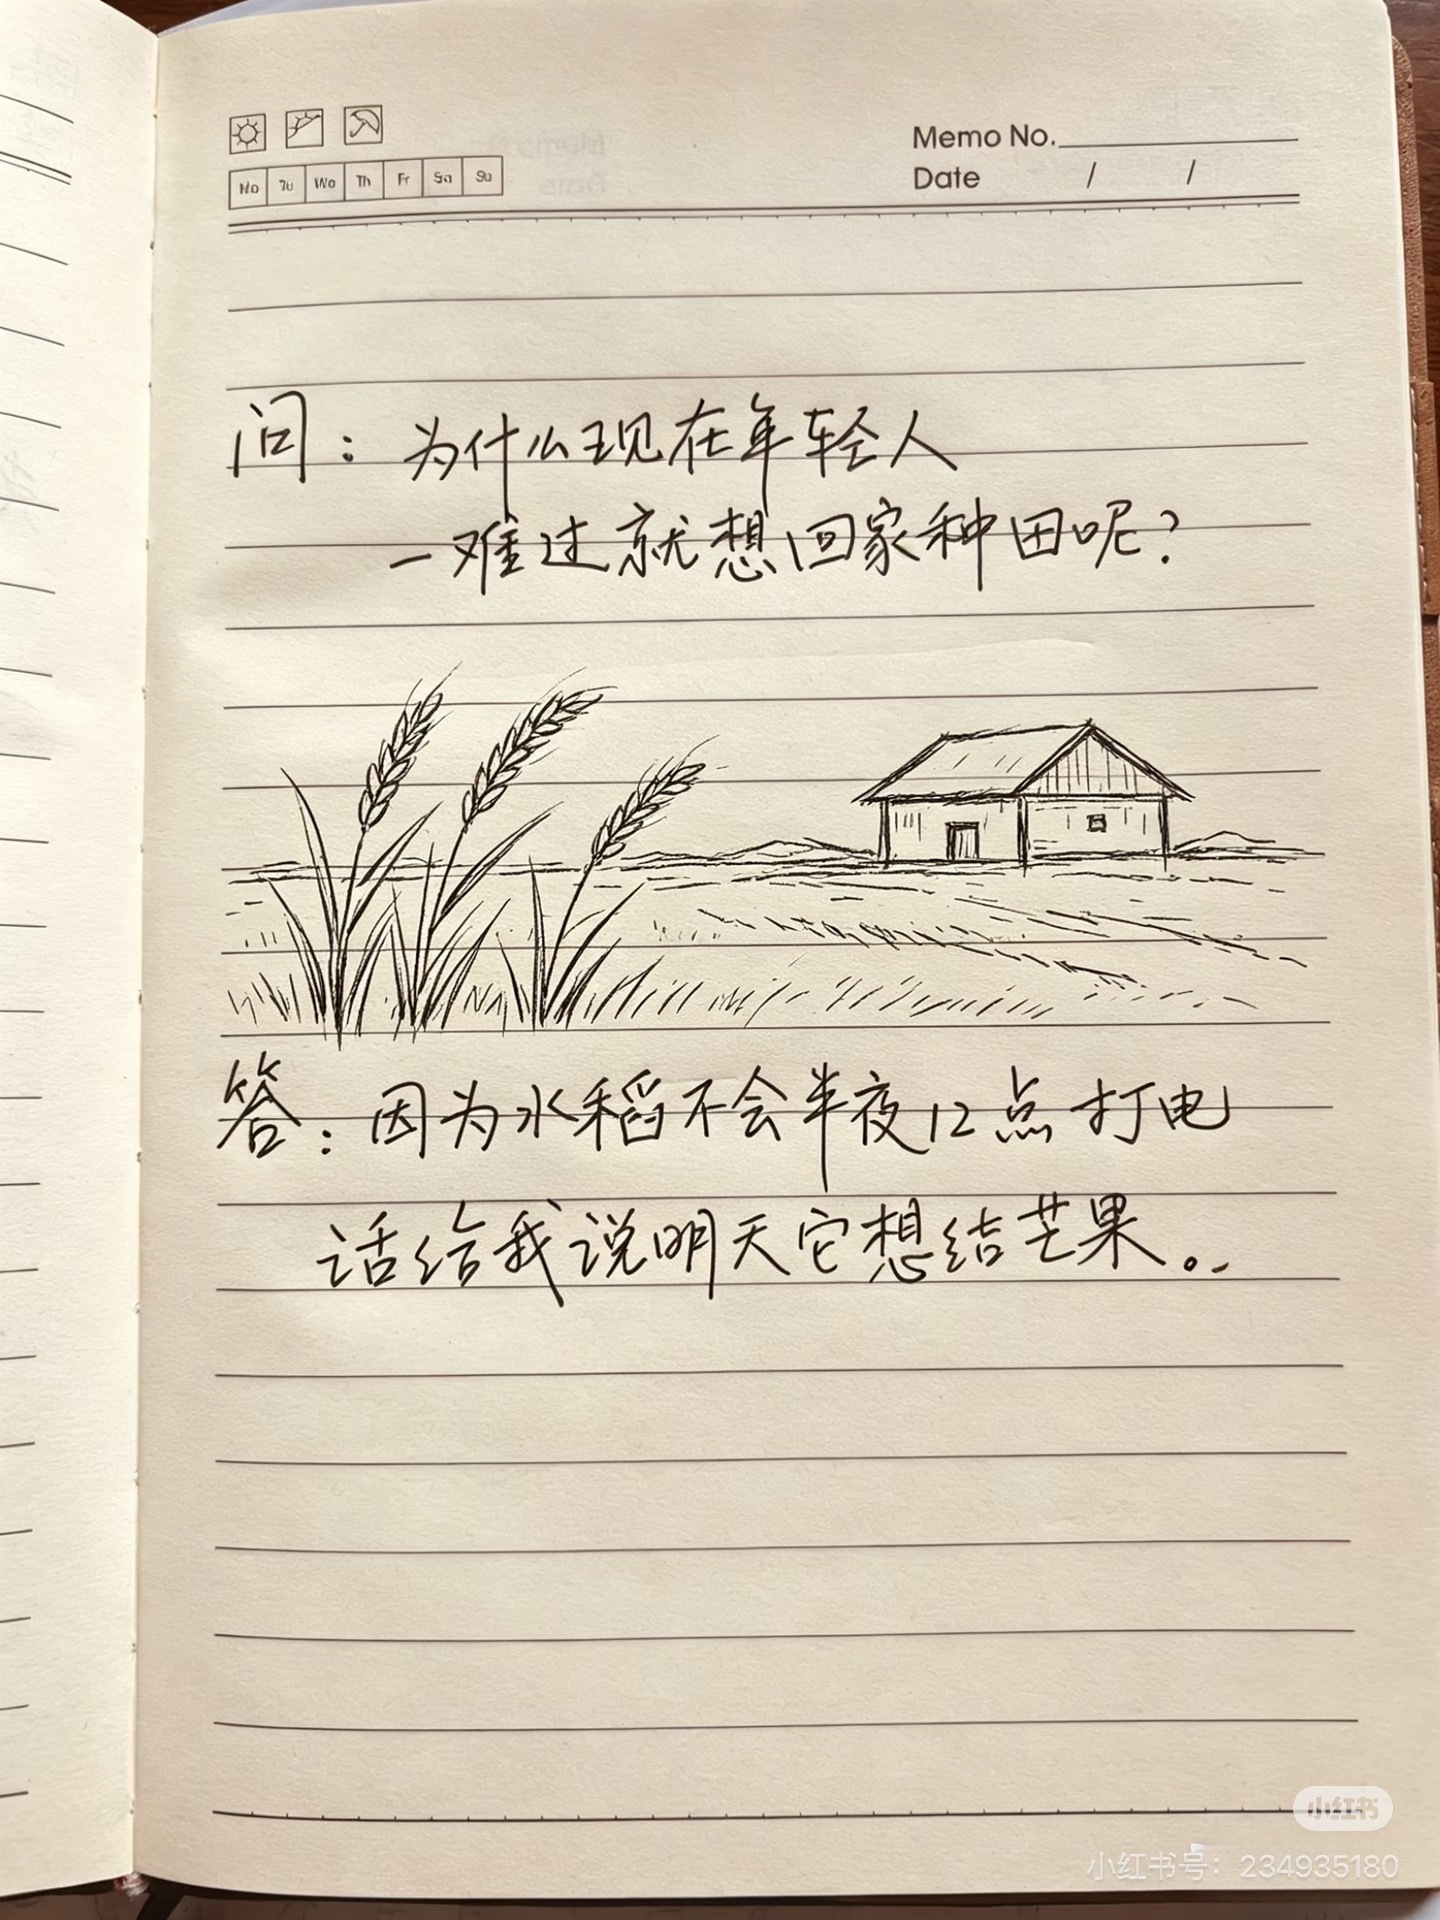 Memo No.
Mo Tu We Th Fr Sa Su
Date / /
问：为什么现在年轻人
一难过就想回家种田呢？
答：因为水稻不会半夜12点打电
话给我说明天它想结芒果。
小红书
小红书号：234935180